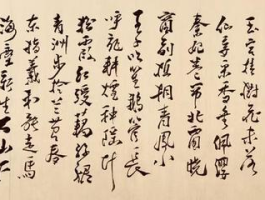 玉宮桂樹花未落
仙妾采香垂佩纓
秦妃卷簾北窗曉
窗前植桐青鳳小
王子吹笙鵝管長
呼龍耕煙種瑤草
粉霞紅綬藕絲裙
青洲步拾蘭苕春
東指羲和能走馬
海塵新生石山下